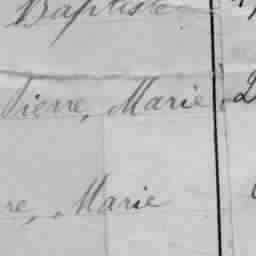 Baptiste
Pierre, Marie
re, Marie